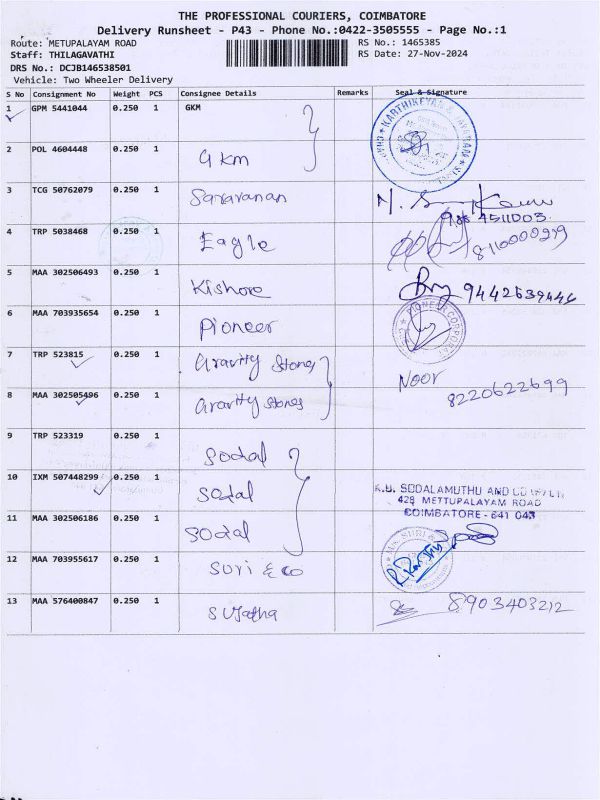 THE PROFESSIONAL COURIERS, COIMBATORE
Delivery Runsheet - P43 - Phone No.:0422-3505555 - Page No.:1
Route: METUPALAYAM ROAD RS No.: 1465385
Staff: THILAGAVATHI RS Date: 27-Nov-2024
DRS No.: DCJB146538501
Vehicle: Two Wheeler Delivery
S No Consignment No Weight PCS Consignee Details Remarks Seal & Signature
1 GPM 5441044 0.250 1 GKM
2 POL 4604448 0.250 1 GKM
3 TCG 50762079 0.250 1 Saravanan
4511003
4 TRP 5038468 0.250 1 Eagle
5 MAA 302506493 0.250 1 Kishore 9442639446
6 MAA 703935654 0.250 1 Pioneer PIONEER CORPORAT
7 TRP 523815 0.250 1 Gravity Stones Noor
8 MAA 302505496 0.250 1 Gravity Stones 8220622699
9 TRP 523319 0.250 1 Sodal
10 IXM 507448299 0.250 1 Sodal
SODALAMUTHU AND CO
METTUPALAYAM ROAD
11 MAA 302506186 0.250 1 Sodal COIMBATORE - 641 043
12 MAA 703955617 0.250 1 Suri & Co
13 MAA 576400847 0.250 1 Sujatha 8903403212